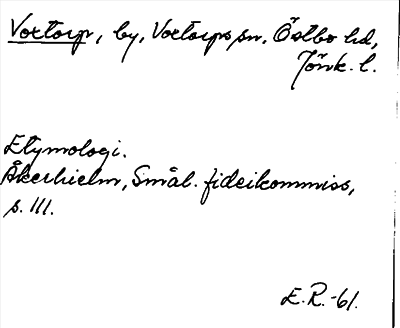 Voxtorp, by, Voxtorps sn, Östbo hd,
Jönk. l.
Etymologi.
Åkerhielm, Smål. fideikommiss,
s. 111.
E. R. -61.